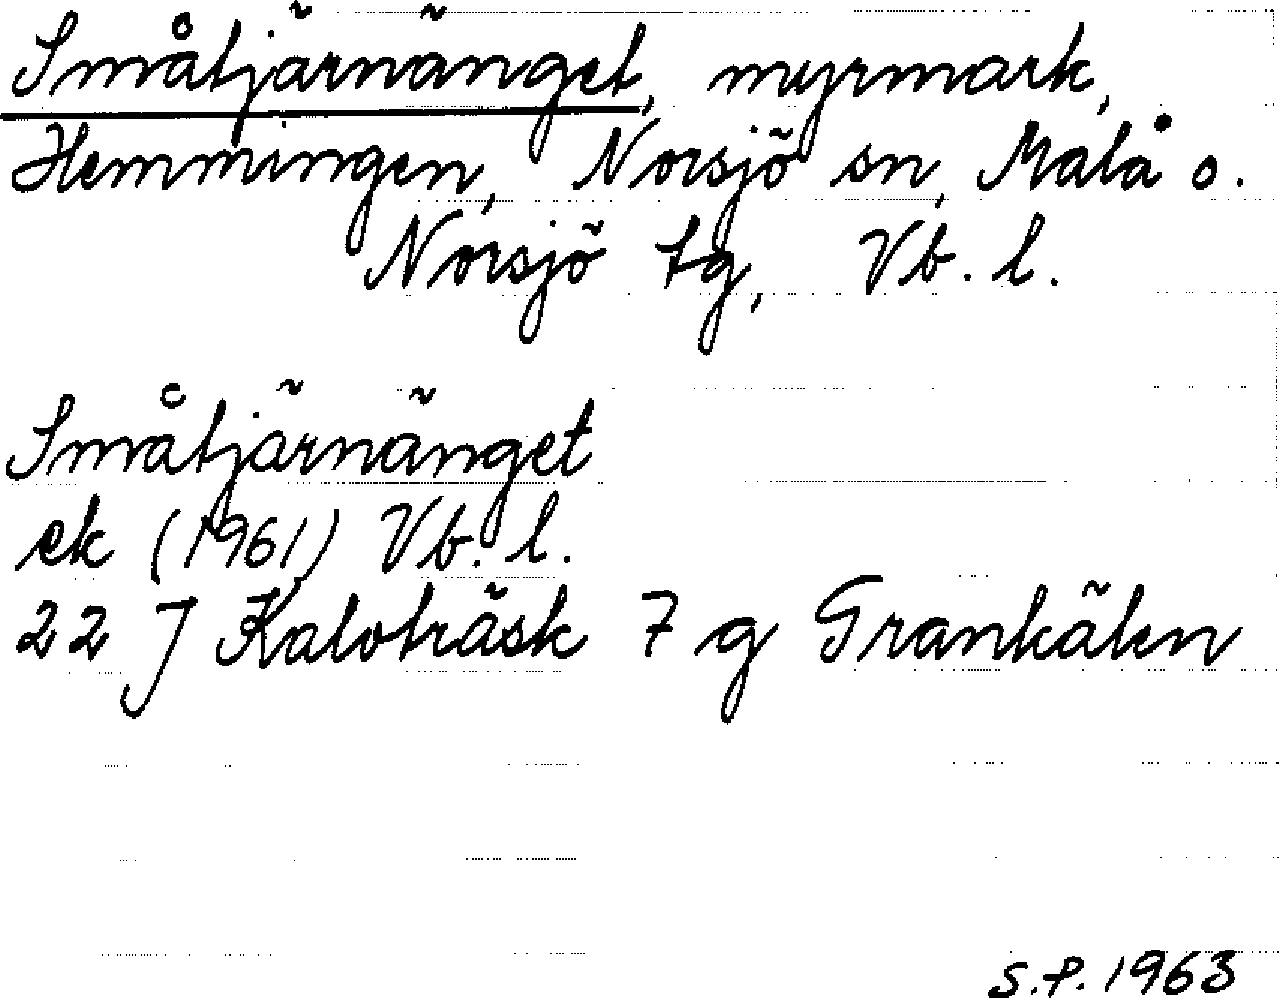 Småtjärnänget, myrmark,
Hemmingen, Norsjö sn, Malå o.
Norsjö tg, Vb. l.
Småtjärnänget
ek (1961) Vb. l.
22 J Kalvträsk 7 g Grankälen
S.P. 1963